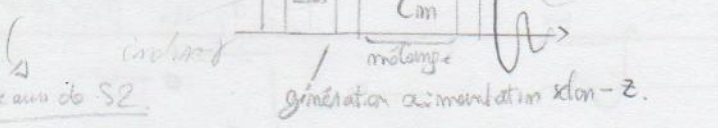 Cm
mélange
de S2.
génération aimantation selon - z.